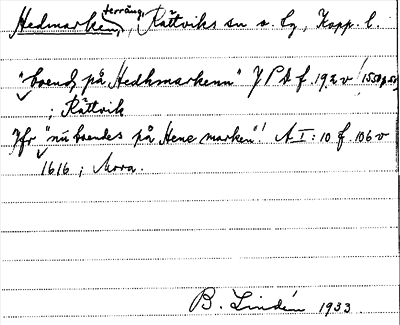 Hedmarken, terräng, Rättviks sn o. Lg, Kopp. l.
"boendes på Hedhmarkenn" JPA f. 192 v
; Rättvik
Jfr "nu boendes på Hene marken"! A I: 10 f. 106 v
1616 ; Mora.
B. Lindén 1933.